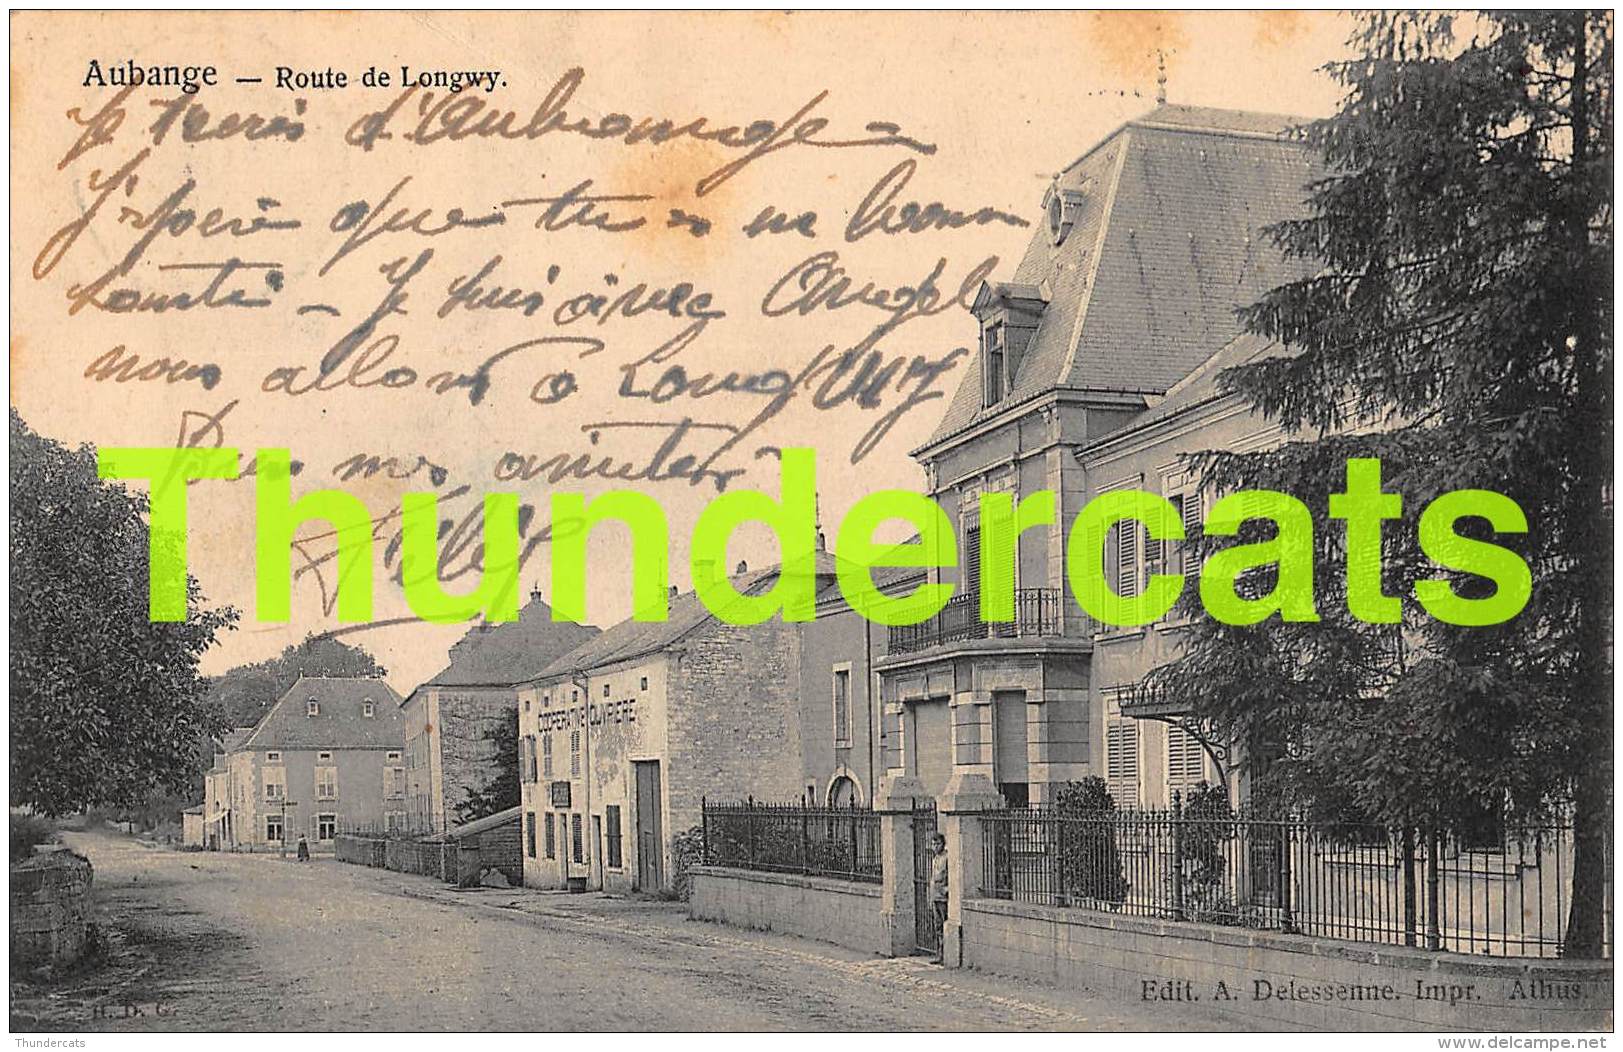 Aubange — Route de Longwy.
Je d'Aubange
J'espère que tu en bonne
santé - Je suis avec Angel
nous allons à Longwy
Bien mes amitiés
Félix
Thundercats
COOPERATIVE OUVRIERE
Edit. A. Delessenne. Impr. Athus.
H. D. G.
Thundercats
www.delcampe.net